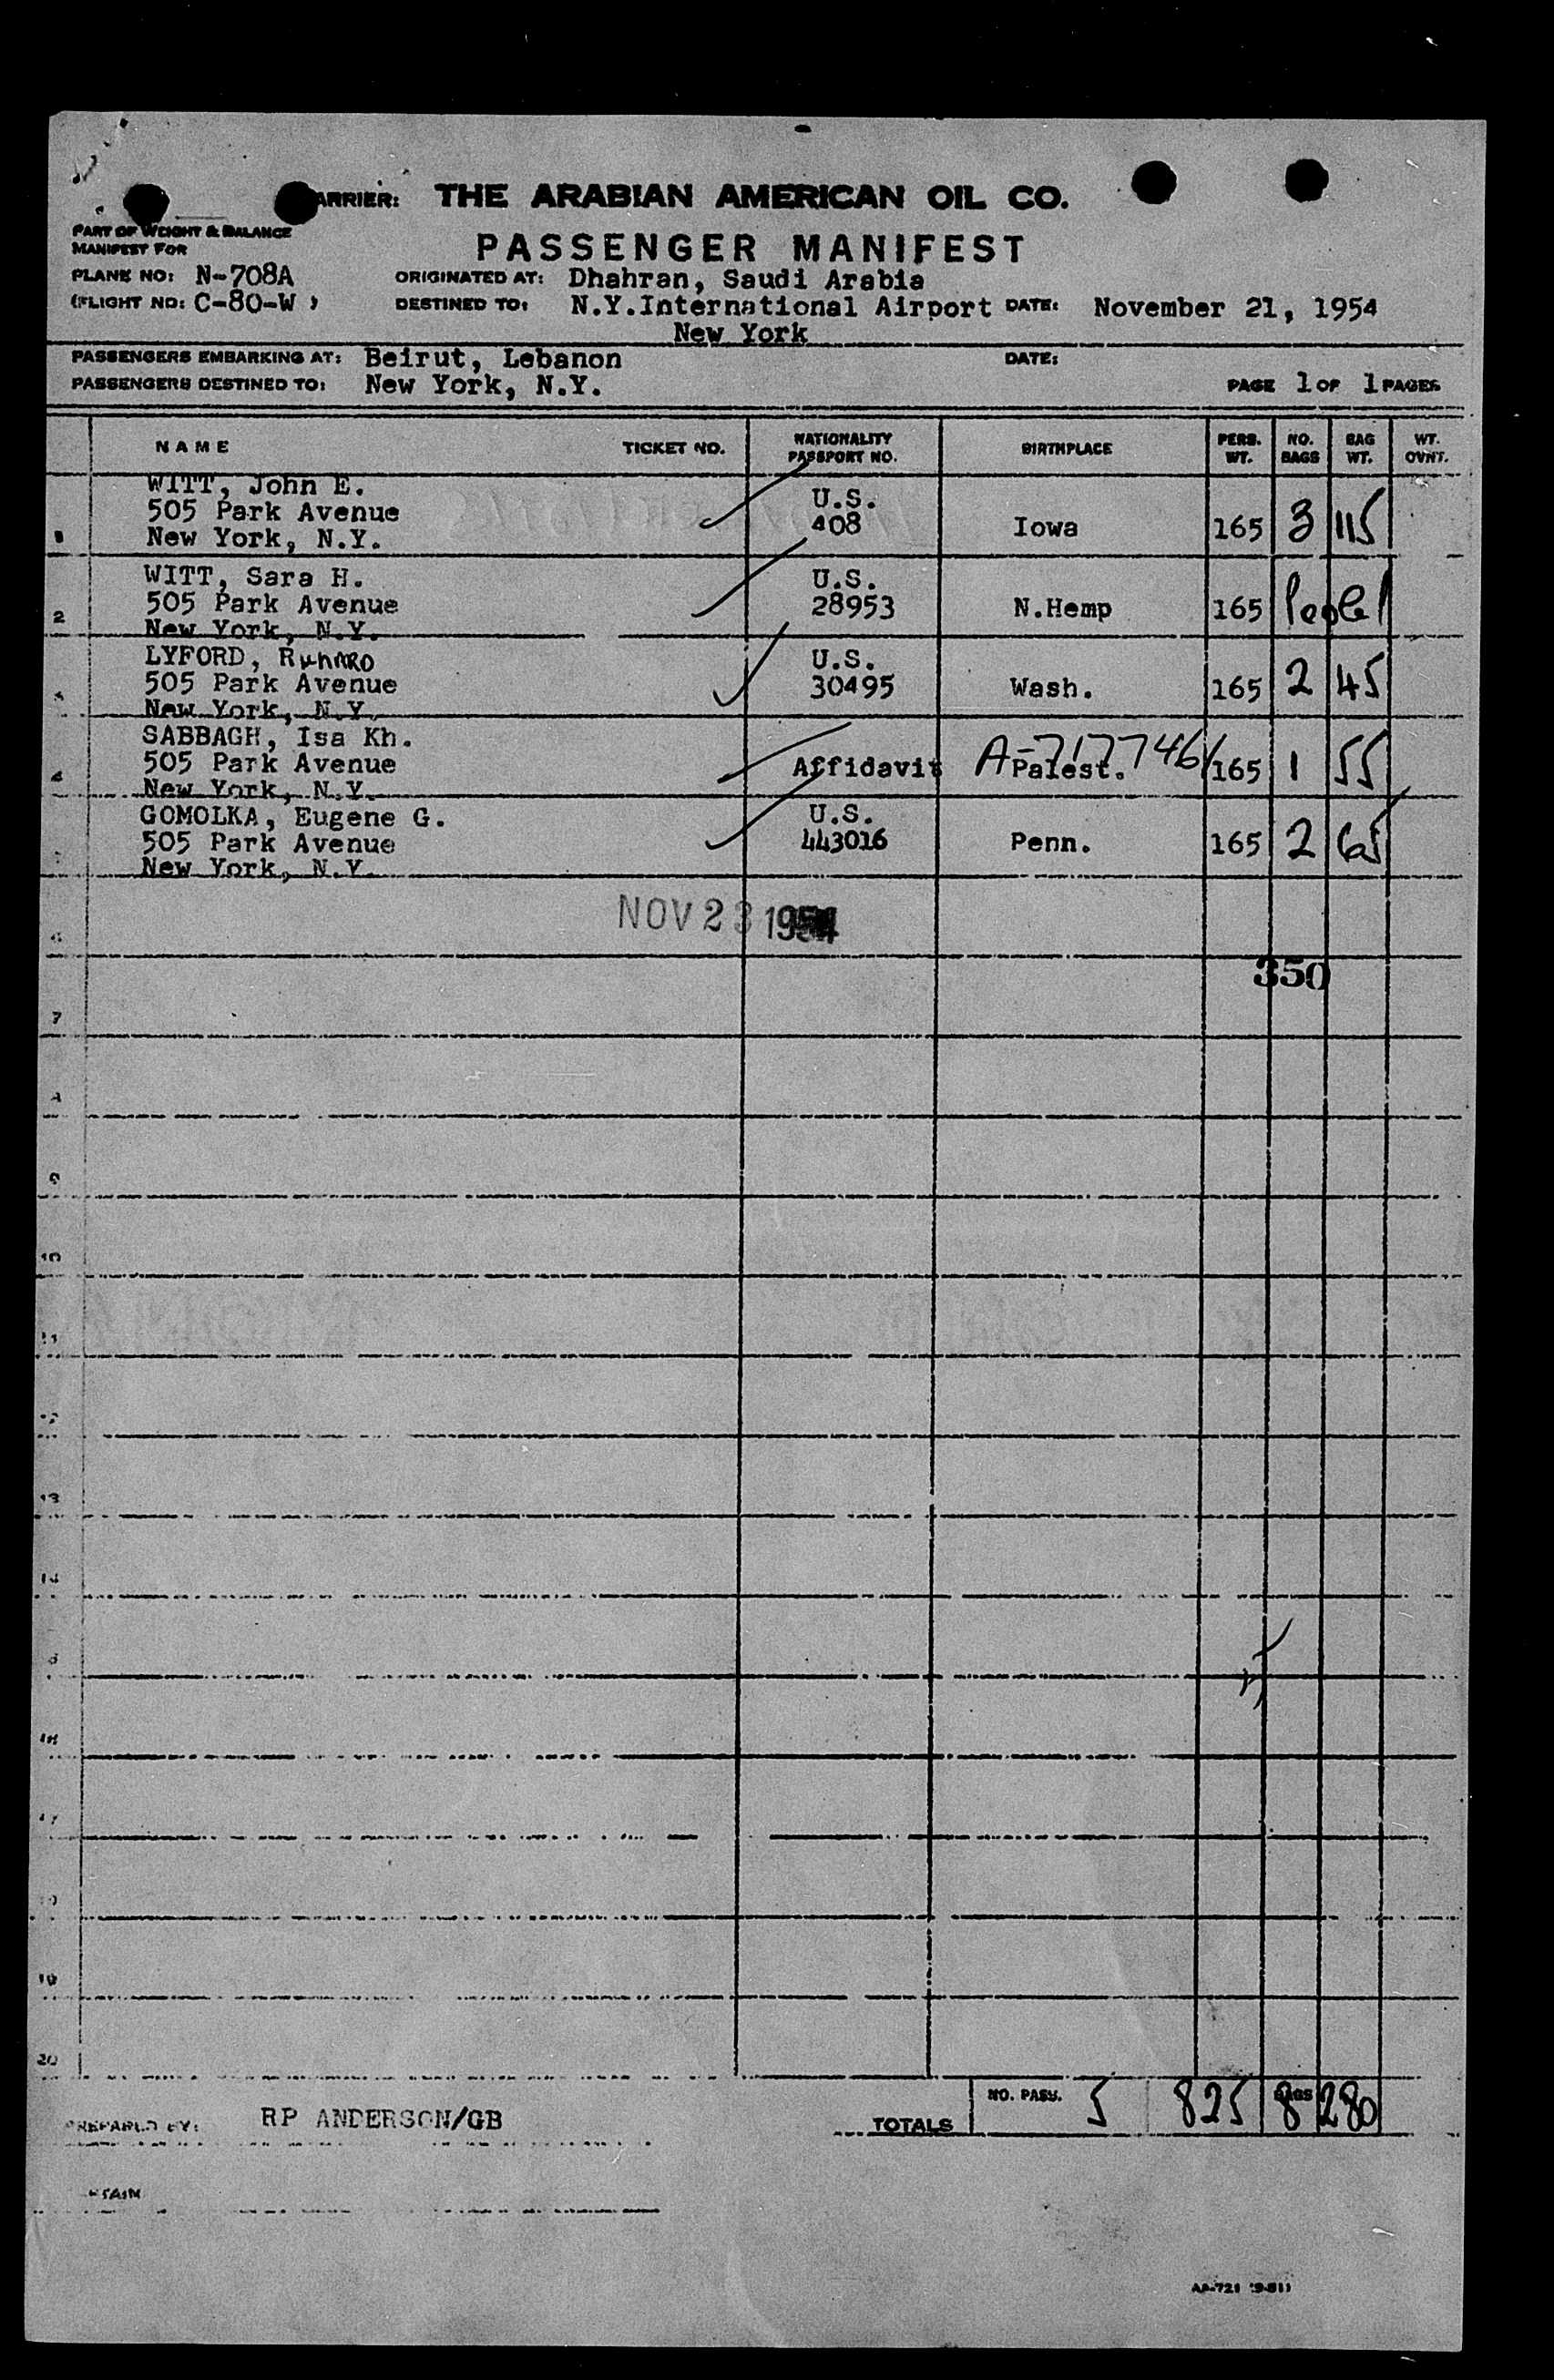 ARRIER: THE ARABIAN AMERICAN OIL CO.
PART OF WEIGHT & BALANCE
MANIFEST FOR
PASSENGER MANIFEST
PLANE NO: N-708A ORIGINATED AT: Dhahran, Saudi Arabia
(FLIGHT NO: C-80-W ) DESTINED TO: N.Y.International Airport DATE: November 21, 1954
New York
PASSENGERS EMBARKING AT: Beirut, Lebanon DATE:
PASSENGERS DESTINED TO: New York, N.Y. PAGE 1 OF 1 PAGES
NAME TICKET NO. NATIONALITY PASSPORT NO. BIRTHPLACE PERS. WT. NO. BAGS BAG WT. WT. OVNT.
WITT, John E.
505 Park Avenue U.S.
1 New York, N.Y. 408 Iowa 165 3 115
WITT, Sara H. U.S.
2 505 Park Avenue 28953 N.Hemp 165
New York, N.Y.
LYFORD, U.S.
3 505 Park Avenue 30495 Wash. 165 2 45
New York, N.Y.
SABBAGH, Isa Kh.
4 505 Park Avenue Affidavit A-7177461 Palest. 165 1 55
New York, N.Y.
GOMOLKA, Eugene G. U.S.
505 Park Avenue 443016 Penn. 165 2 65
New York, N.Y.
NOV 23 1954
6
350
7
9
10
11
12
13
14
16
17
19
20
PREPARED BY: RP ANDERSON/GB TOTALS NO. PASS. 5 825 BAGS 8 280
AA-721 (9-51)